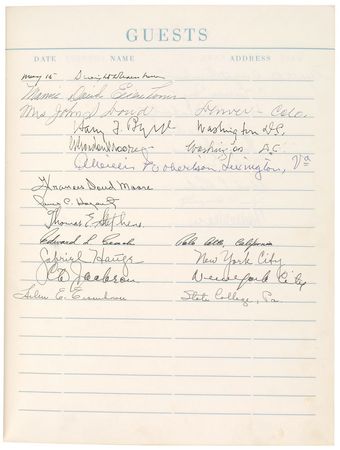 GUESTS
DATE NAME ADDRESS
May 15 Dwight D Eisenhower
Mamie Doud Eisenhower
Mrs John S Doud Denver - Colo.
Harry F. Byrd Washington D.C.
Washington D.C.
A Willis Robertson Lexington, Va
Frances Doud Moore
Thomas E. Stephens
Edward L. Beach Palo Alto, California
Gabriel Hauge New York City
C D Jackson New York City
Helen E. Eisenhower State College, Pa.